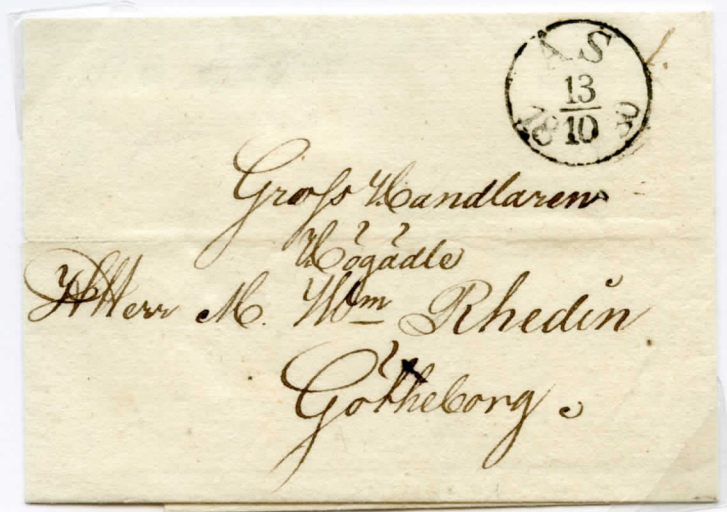 ÅS
13
10
1830
Gross Handlaren
Högädle
Herr M. Wm Rhedin
Götheborg.